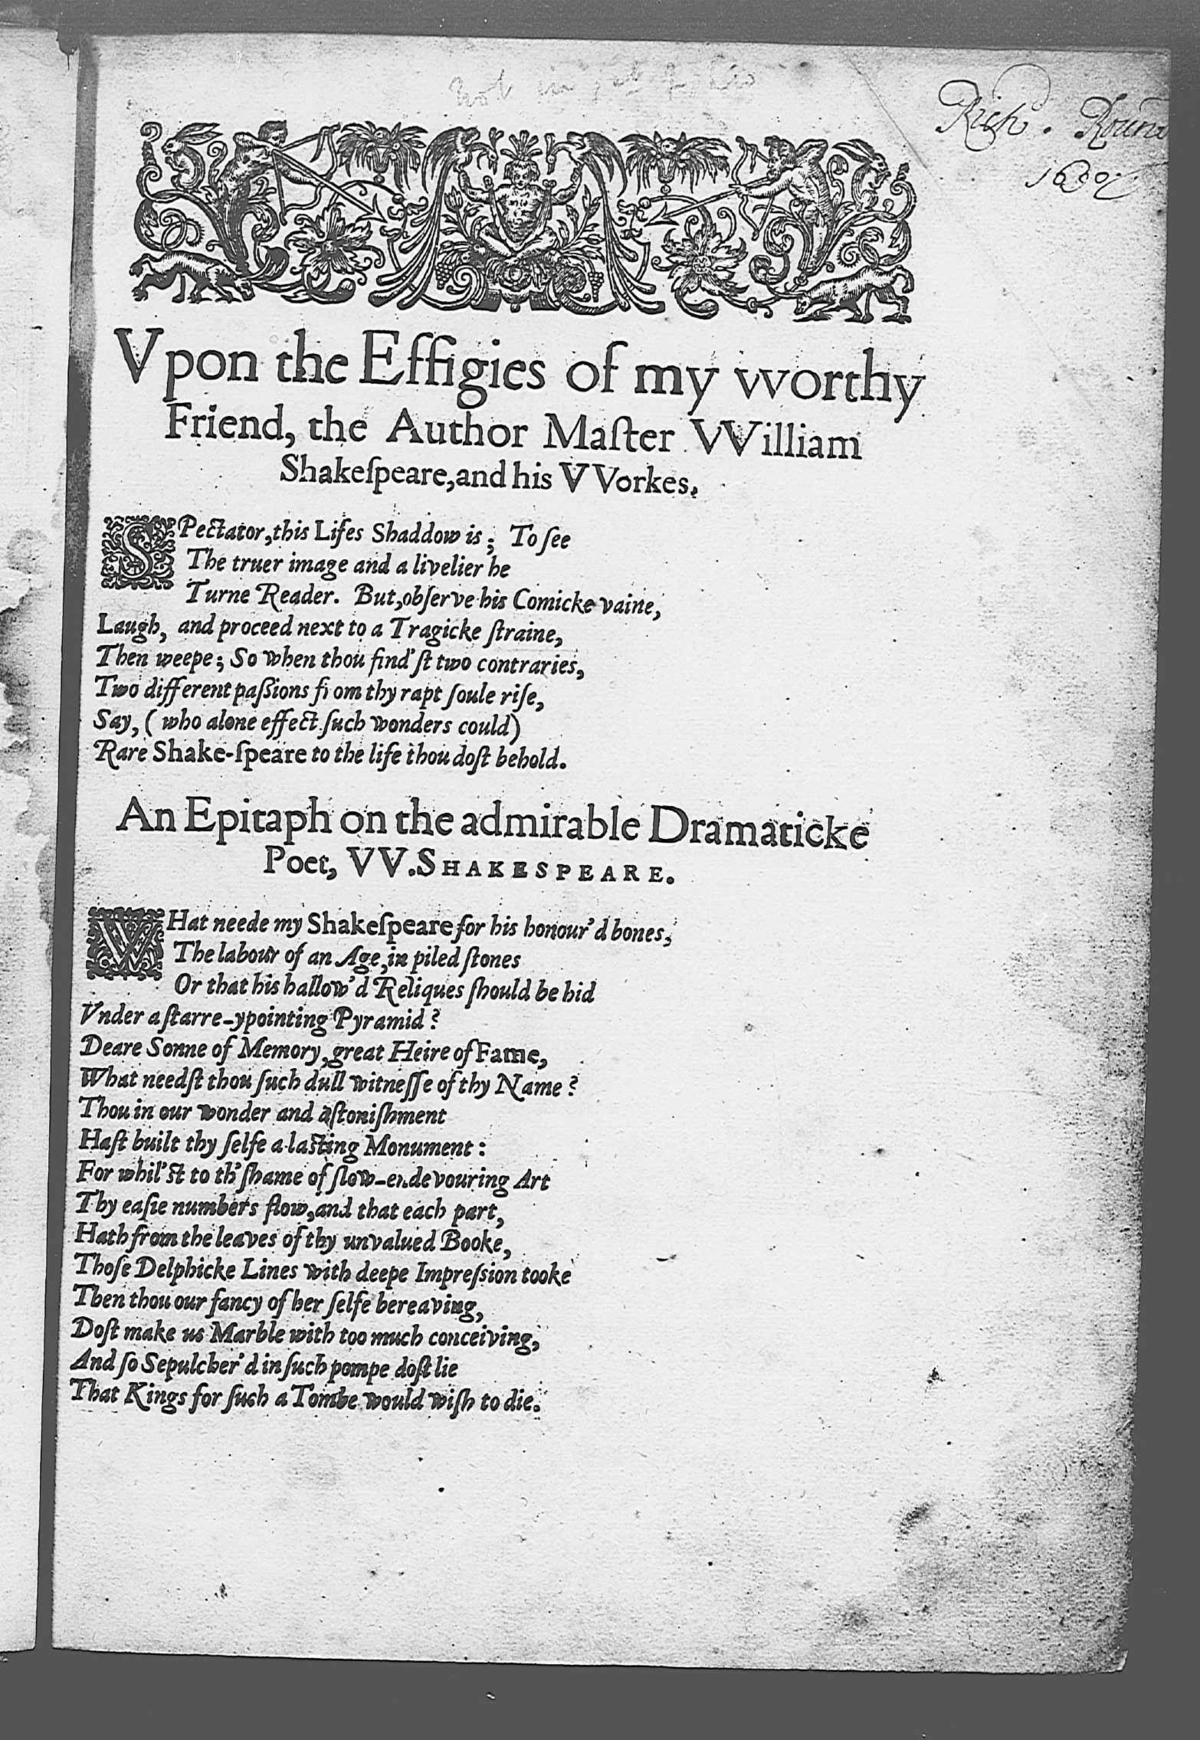 Rich.
Vpon the Effigies of my vvorthy
Friend, the Author Maſter VVilliam
Shakeſpeare, and his VVorkes.
SPectator, this Lifes Shaddow is; To ſee
The truer image and a livelier he
Turne Reader. But, obſerve his Comicke vaine,
Laugh, and proceed next to a Tragicke ſtraine,
Then weepe; So when thou find'ſt two contraries,
Two different paſsions from thy rapt ſoule riſe,
Say, (who alone effect ſuch wonders could)
Rare Shake-ſpeare to the life thou doſt behold.
An Epitaph on the admirable Dramaticke
Poet, VV. SHAKESPEARE.
WHat neede my Shakeſpeare for his honour'd bones,
The labour of an Age, in piled ſtones
Or that his hallow'd Reliques ſhould be hid
Vnder a ſtarre-ypointing Pyramid?
Deare Sonne of Memory, great Heire of Fame,
What needſt thou ſuch dull witneſſe of thy Name?
Thou in our wonder and aſtoniſhment
Haſt built thy ſelfe a laſting Monument:
For whil'ſt to th' ſhame of ſlow-endevouring Art
Thy eaſie numbers flow, and that each part,
Hath from the leaves of thy unvalued Booke,
Thoſe Delphicke Lines with deepe Impreſsion tooke
Then thou our fancy of her ſelfe bereaving,
Doſt make us Marble with too much conceiving,
And ſo Sepulcher'd in ſuch pompe doſt lie
That Kings for ſuch a Tombe would wiſh to die.